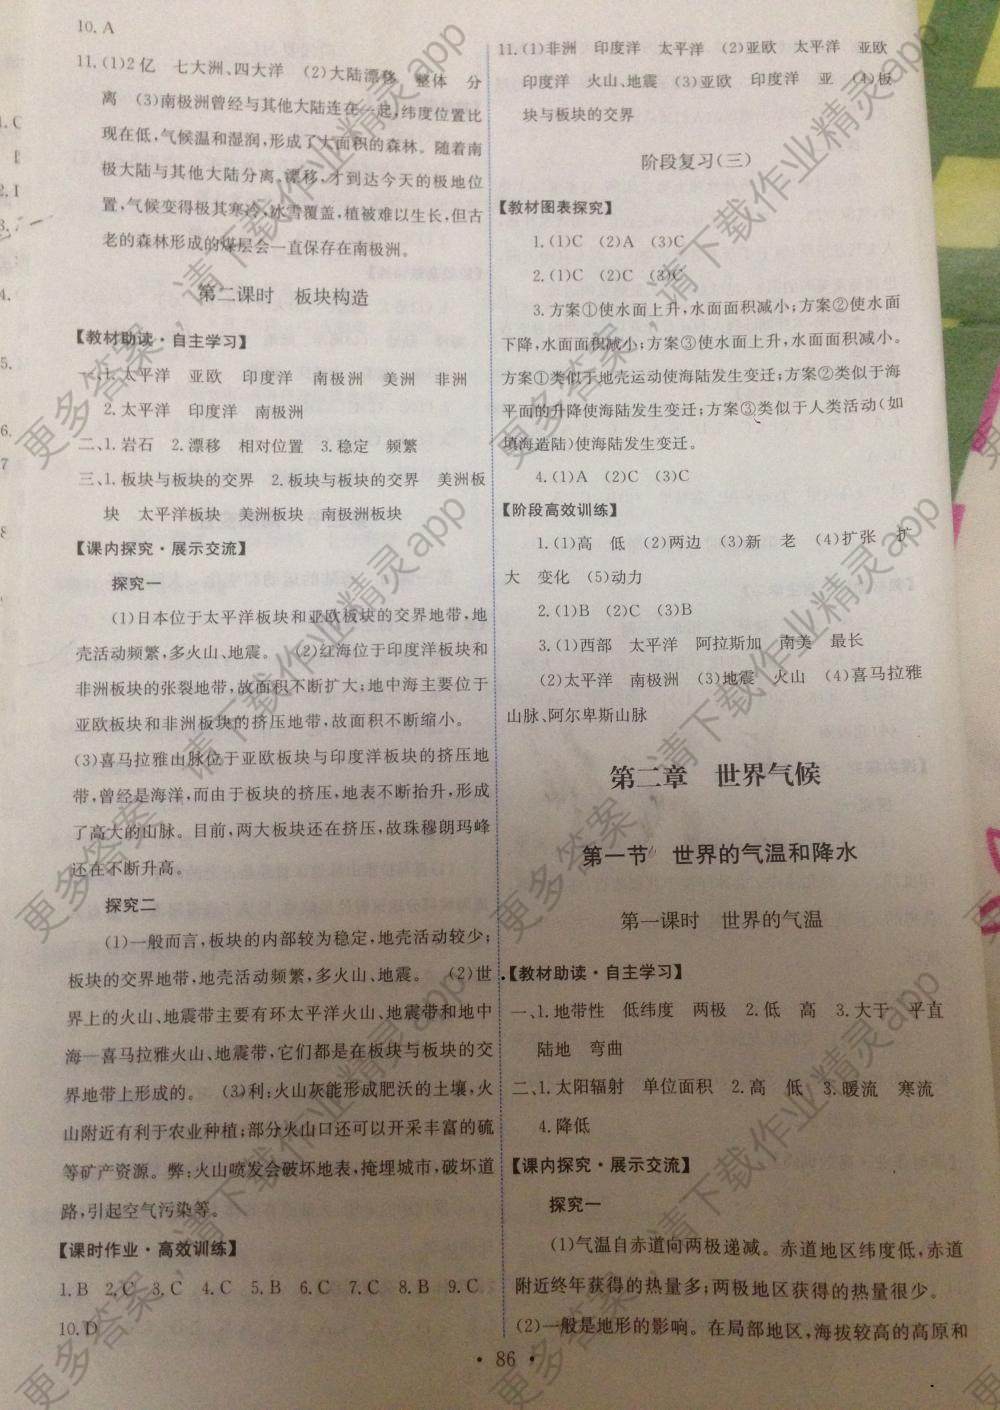 10. A
11. (1)2亿　七大洲、四大洋　(2)大陆漂移　整体　分
离　(3)南极洲曾经与其他大陆连在一起,纬度位置比
现在低,气候温和湿润,形成了大面积的森林。随着南
极大陆与其他大陆分离、漂移,才到达今天的极地位
置,气候变得极其寒冷,冰雪覆盖,植被难以生长,但古
老的森林形成的煤层会一直保存在南极洲。
第二课时　板块构造
【教材助读·自主学习】
一、1.太平洋　亚欧　印度洋　南极洲　美洲　非洲
2.太平洋　印度洋　南极洲
二、1.岩石　2.漂移　相对位置　3.稳定　频繁
三、1.板块与板块的交界　2.板块与板块的交界　美洲板
块　太平洋板块　美洲板块　南极洲板块
【课内探究·展示交流】
探究一
(1)日本位于太平洋板块和亚欧板块的交界地带,地
壳活动频繁,多火山、地震。　(2)红海位于印度洋板块和
非洲板块的张裂地带,故面积不断扩大;地中海主要位于
亚欧板块和非洲板块的挤压地带,故面积不断缩小。
(3)喜马拉雅山脉位于亚欧板块与印度洋板块的挤压地
带,曾经是海洋,而由于板块的挤压,地表不断抬升,形成
了高大的山脉。目前,两大板块还在挤压,故珠穆朗玛峰
还在不断升高。
探究二
(1)一般而言,板块的内部较为稳定,地壳活动较少;
板块的交界地带,地壳活动频繁,多火山、地震。　(2)世
界上的火山、地震带主要有环太平洋火山、地震带和地中
海—喜马拉雅火山、地震带,它们都是在板块与板块的交
界地带上形成的。　(3)利:火山灰能形成肥沃的土壤,火
山附近有利于农业种植;部分火山口还可以开采丰富的硫
等矿产资源。弊:火山喷发会破坏地表,掩埋城市,破坏道
路,引起空气污染等。
【课时作业·高效训练】
1. B　2. C　3. C　4. C　5. B　6. C　7. C　8. B　9. C
10. D
11. (1)非洲　印度洋　太平洋　(2)亚欧　太平洋　亚欧
印度洋　火山、地震　(3)亚欧　印度洋　亚　(4)板
块与板块的交界
阶段复习(三)
【教材图表探究】
1. (1)C　(2)A　(3)C
2. (1)C　(2)C　(3)C
3. 方案①使水面上升,水面面积减小;方案②使水面
下降,水面面积减小;方案③使水面上升,水面面积减小。
方案①类似于地壳运动使海陆发生变迁;方案②类似于海
平面的升降使海陆发生变迁;方案③类似于人类活动(如
填海造陆)使海陆发生变迁。
4. (1)A　(2)C　(3)C
【阶段高效训练】
1. (1)高　低　(2)两边　(3)新　老　(4)扩张　扩
大　变化　(5)动力
2. (1)B　(2)C　(3)B
3. (1)西部　太平洋　阿拉斯加　南美　最长
(2)太平洋　南极洲　(3)地震　火山　(4)喜马拉雅
山脉、阿尔卑斯山脉
第二章　世界气候
第一节　世界的气温和降水
第一课时　世界的气温
【教材助读·自主学习】
一、1.地带性　低纬度　两极　2.低　高　3.大于　平直
陆地　弯曲
二、1.太阳辐射　单位面积　2.高　低　3.暖流　寒流
4.降低
【课内探究·展示交流】
探究一
(1)气温自赤道向两极递减。赤道地区纬度低,赤道
附近终年获得的热量多;两极地区获得的热量很少。
(2)一般是地形的影响。在局部地区,海拔较高的高原和
• 86 •
更多答案,请下载作业精灵app